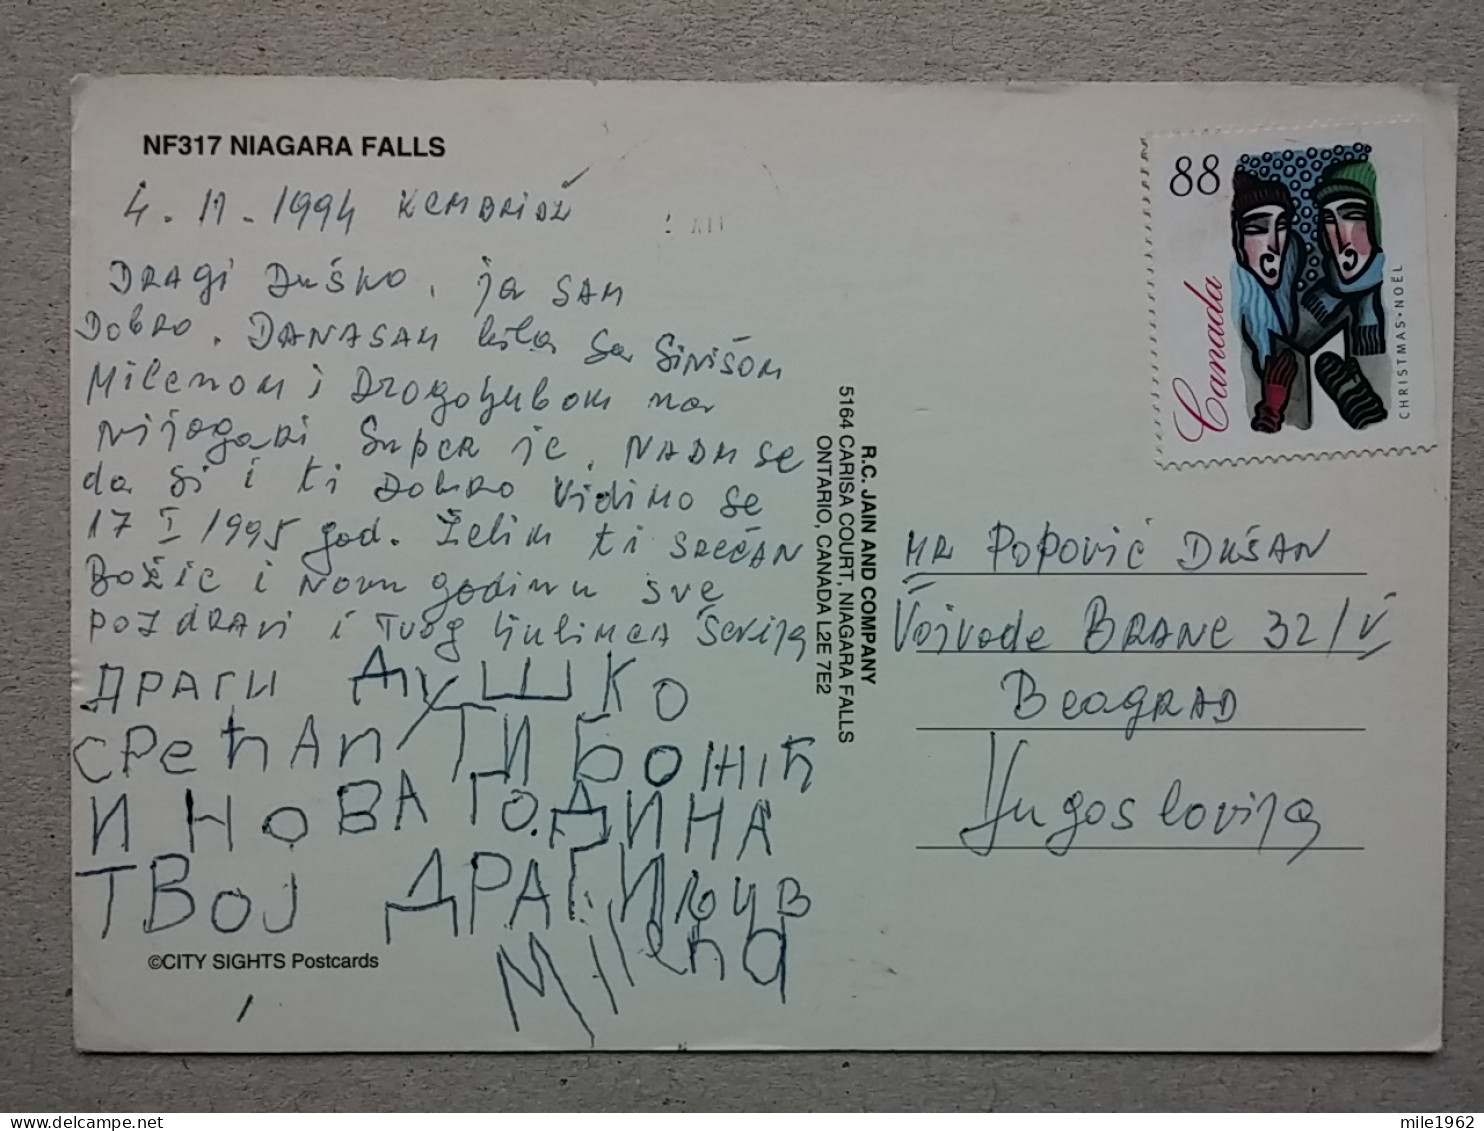 NF317 NIAGARA FALLS
4.11.1994 KEMBRIDŽ
DRAGI DUŠKO, ja SAM
DOBRO. DANASAM bila Sa SINIŠOM
MILENOM i DRAGOLJUBOM na
Nijagari SUPER je. NADAM se
da si i ti DOBRO Vidimo se
17 I 1995 god. Želim ti SREĆAN
BOŽIC i NOVU godinu SVE
POZDRAVI i TVOG ljubimca
ДРАГИ ДУШКО
СРЕЋАN ТИ БОЖІЋ
И НОВА ГОДИНА
ТВОЈ ДРАГИЉУВ
Milena
©CITY SIGHTS Postcards
R.C. JAIN AND COMPANY
5164 CARISA COURT, NIAGARA FALLS
ONTARIO, CANADA L2E 7E2
88
Canada
CHRISTMAS•NOËL
MR POPOVIĆ DUŠAN
Vojvode BRANE 32/V
BeogRAD
Yugoslovija
mile1962